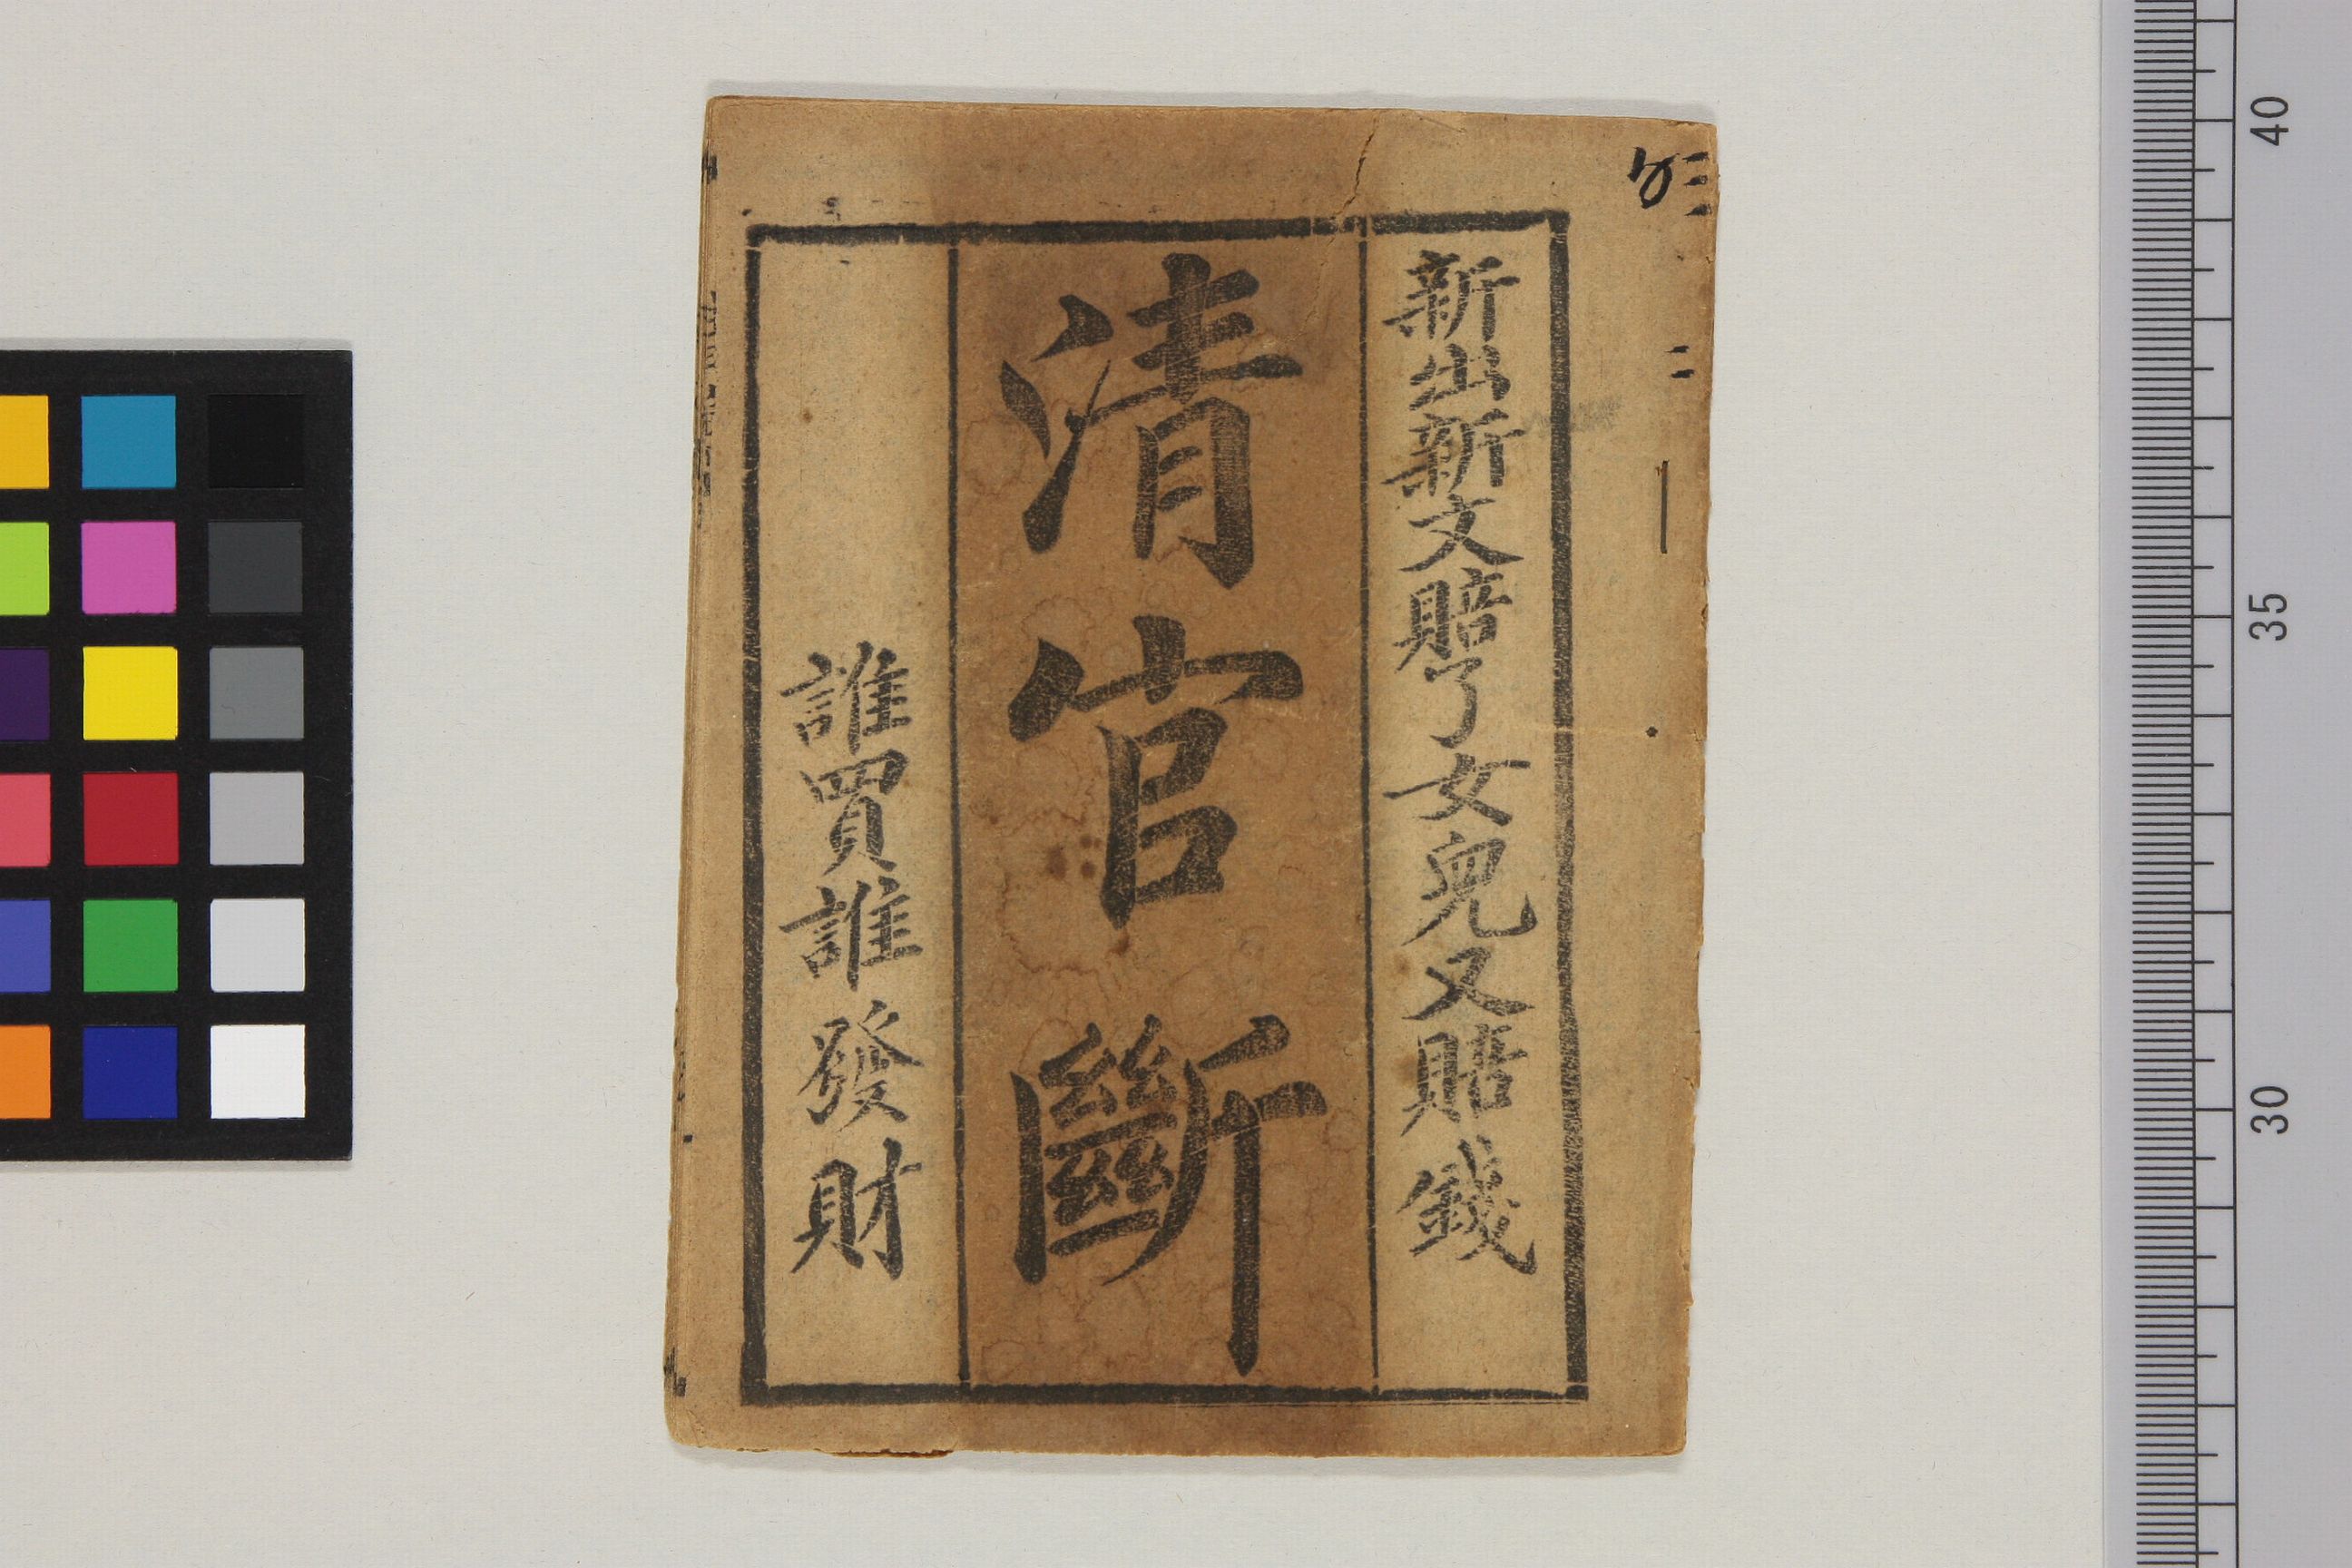 新出新文賠了女兒又賠錢
清官斷
誰買誰發財
40
35
30